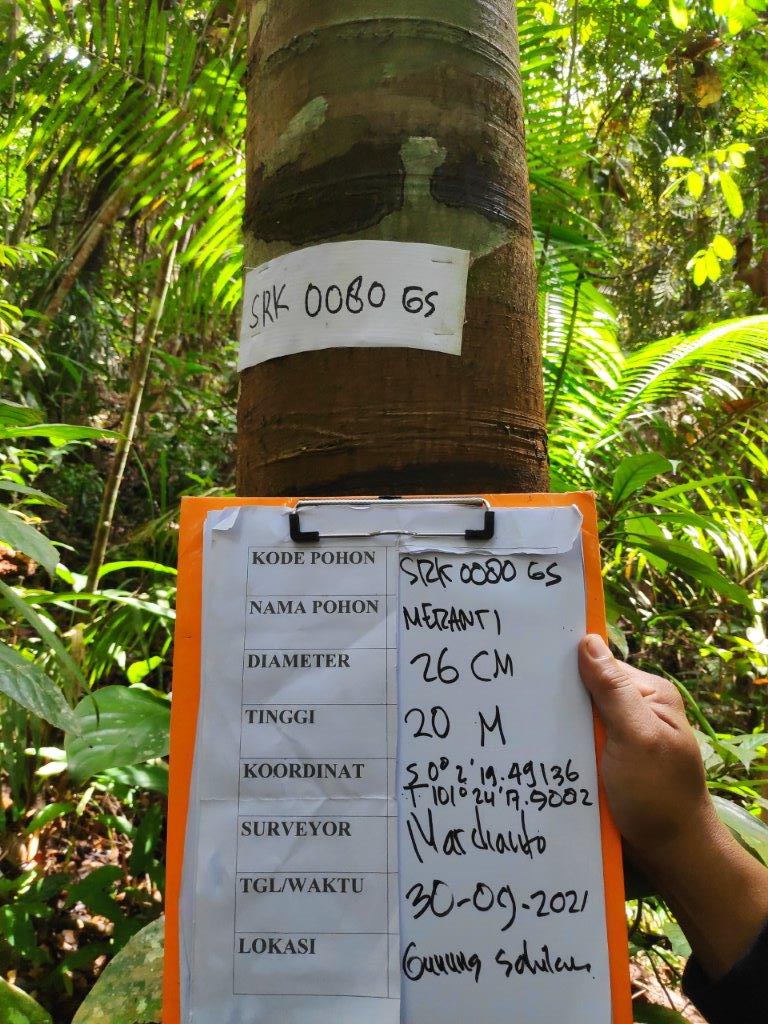 SRK 0080 GS
KODE POHON SRK 0080 GS
NAMA POHON MERANTI
DIAMETER 26 CM
TINGGI 20 M
KOORDINAT S 0° 2' 19.49136
T 101° 24' 17.9002
SURVEYOR
TGL/WAKTU 30-09-2021
LOKASI Gunung